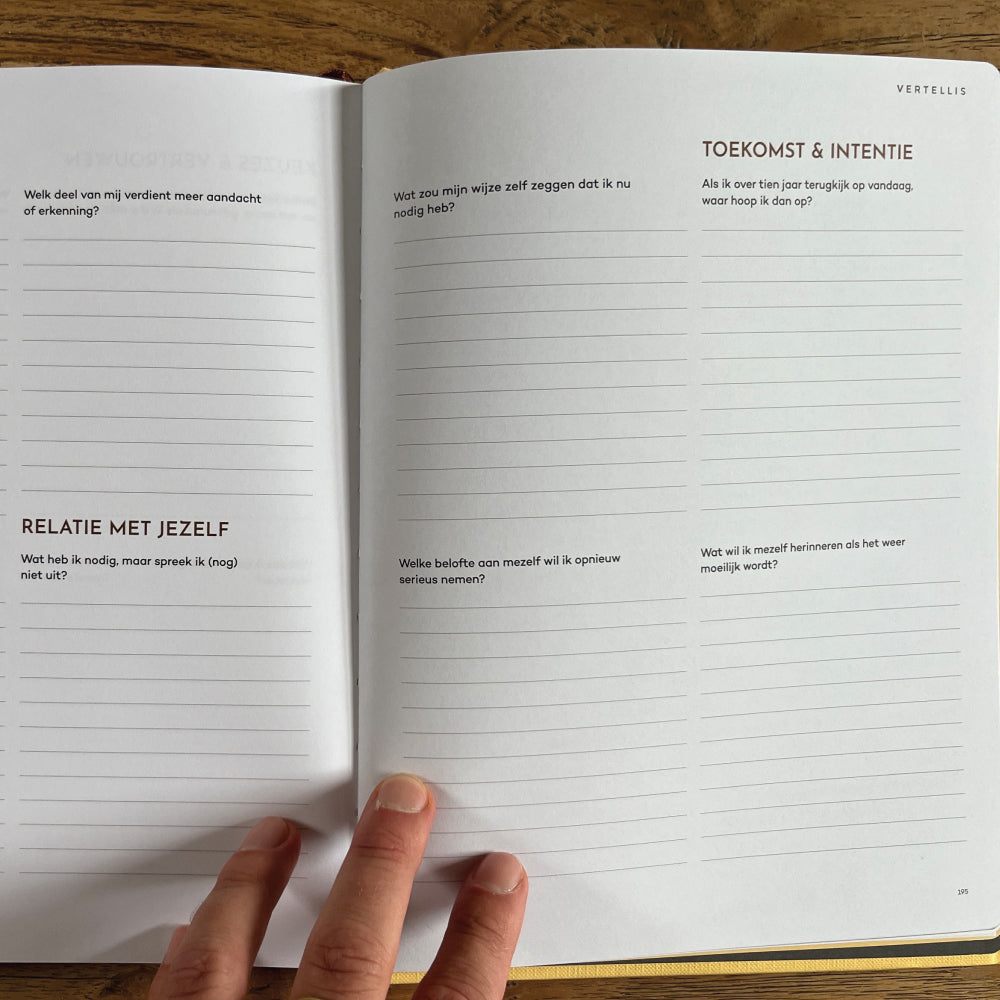 Welk deel van mij verdient meer aandacht
of erkenning?
RELATIE MET JEZELF
Wat heb ik nodig, maar spreek ik (nog)
niet uit?
VERTELLIS
Wat zou mijn wijze zelf zeggen dat ik nu
nodig heb?
Welke belofte aan mezelf wil ik opnieuw
serieus nemen?
TOEKOMST & INTENTIE
Als ik over tien jaar terugkijk op vandaag,
waar hoop ik dan op?
Wat wil ik mezelf herinneren als het weer
moeilijk wordt?
195